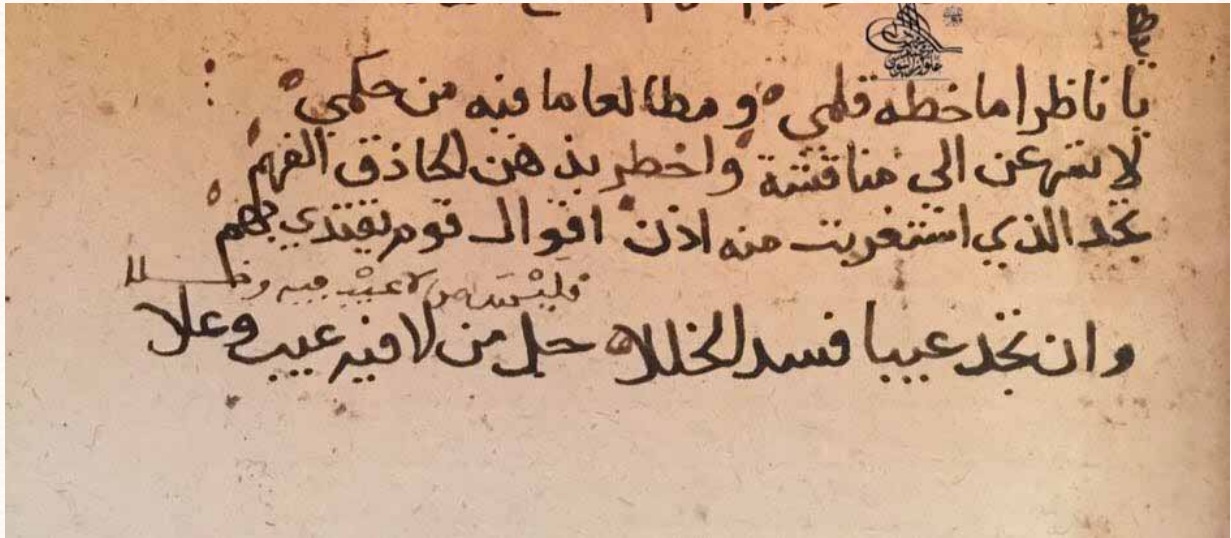 يا ناظرا ما خطه قلمي ومطالعا ما فيه من حكمي
لا تسرعن الى مناقشة واخطر بذهن الحاذق الفهم
تجد الذي استغربت منه اذن اقوال قوم نقتدي بهم
فليس من لا عيب فيه
وان تجد عيبا فسد الخللا جل من لا فيه عيب وعلا